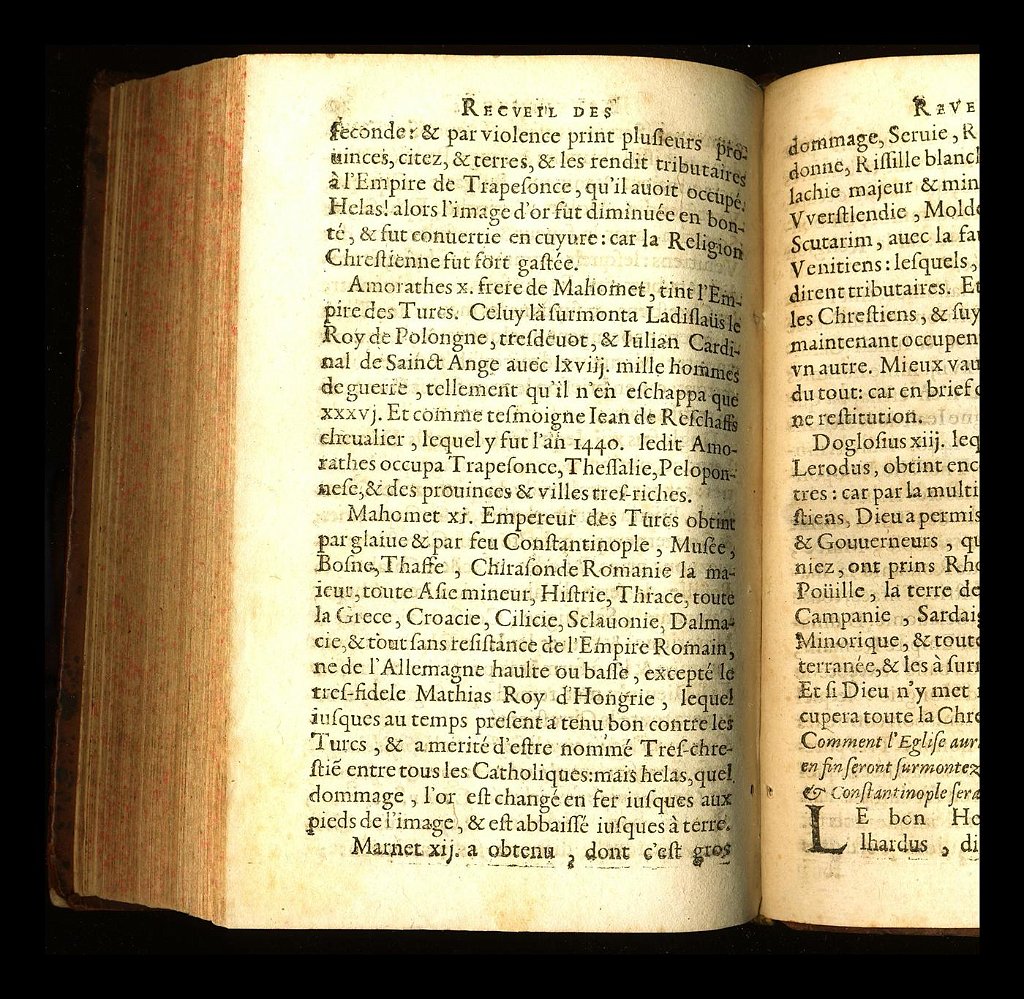 RECVEIL DES
ſeconde: & par violence print pluſieurs pro-
uinces, citez, & terres, & les rendit tributaires
à l'Empire de Trapeſonce, qu'il auoit occupé.
Helas! alors l'image d'or fut diminuée en bon-
té, & fut conuertie en cuyure: car la Religion
Chreſtienne fut fort gaſtée.
Amorathes x. frere de Mahomet, tint l'Em-
pire des Turcs. Celuy là ſurmonta Ladiſlaüs le
Roy de Polongne, treſdeuot, & Iulian Cardi-
nal de Sainct Ange auec lxviij. mille hommes
de guerre, tellement qu'il n'en eſchappa que
xxxvj. Et comme teſmoigne Iean de Reſchaffs
cheualier, lequel y fut l'an 1440. ledit Amo-
rathes occupa Trapeſonce, Theſſalie, Pelopon-
neſe, & des prouinces & villes treſ-riches.
Mahomet xj. Empereur des Turcs obtint
par glaiue & par feu Conſtantinople, Muſée,
Boſne, Thaſſe, Chiraſonde Romanie la ma-
ieur, toute Aſie mineur, Hiſtrie, Thrace, toute
la Grece, Croacie, Cilicie, Sclauonie, Dalma-
cie, & tout ſans reſiſtance de l'Empire Romain,
ne de l'Allemagne haulte ou baſſe, excepté le
treſ-fidele Mathias Roy d'Hongrie, lequel
iuſques au temps preſent a tenu bon contre les
Turcs, & a merité d'eſtre nommé Treſ-chre-
ſtiē entre tous les Catholiques: mais helas, quel
dommage, l'or eſt changé en fer iuſques aux
pieds de l'image, & eſt abbaiſſé iuſques à terre.
Marnet xij. a obtenu, dont c'eſt gros
REVE
dommage, Seruie, R
donne, Riſſille blancl
lachie majeur & min
Vverſtlendie, Molde
Scutarim, auec la fau
Venitiens: leſquels,
dirent tributaires. Et
les Chreſtiens, & ſuy
maintenant occupen
vn autre. Mieux vau
du tout: car en brief
ne reſtitution.
Dogloſius xiij. leq
Lerodus, obtint enc
tres: car par la multi
ſtiens, Dieu a permis
& Gouuerneurs, qu
niez, ont prins Rho
Poüille, la terre de
Campanie, Sardaig
Minorique, & toute
terranée, & les à ſurr
Et ſi Dieu n'y met
cupera toute la Chre
Comment l'Egliſe aur
en fin ſeront ſurmontez
& Conſtantinople ſera
LE bon He
lhardus, di